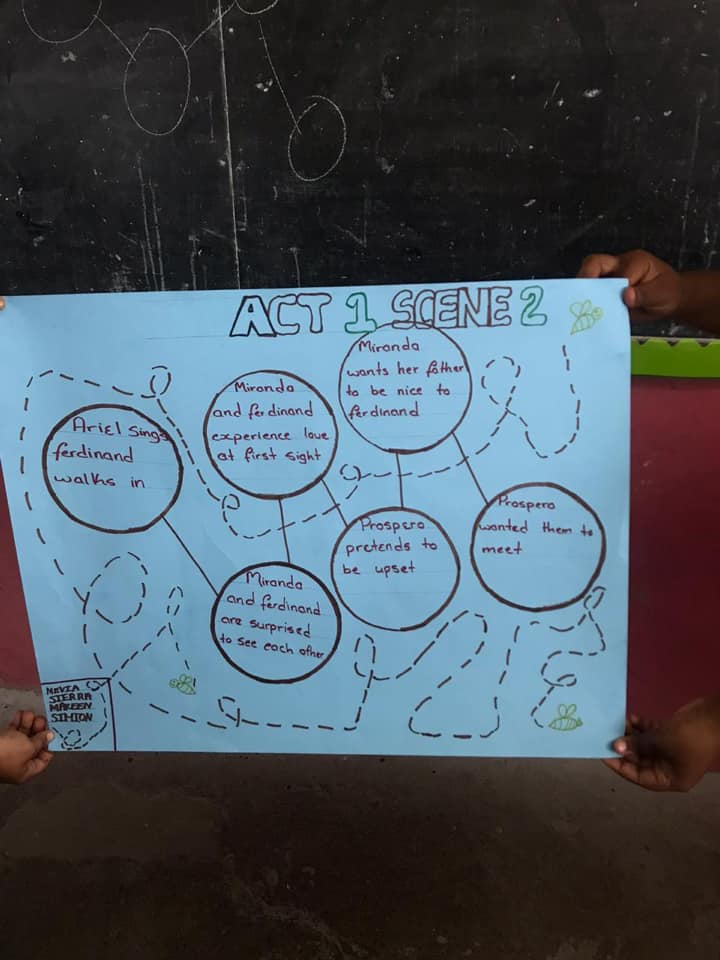 ACT 1 SCENE 2
Ariel Sings
ferdinand
walks in
Miranda
and ferdinand
are surprised
to see each other
Miranda
and ferdinand
experience love
at first sight
Prospero
pretends to
be upset
Miranda
wants her father
to be nice to
ferdinand
Prospero
wanted them to
meet
SIERRA
SIMION